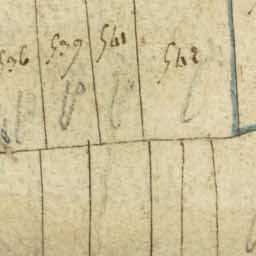 536 539 541 542